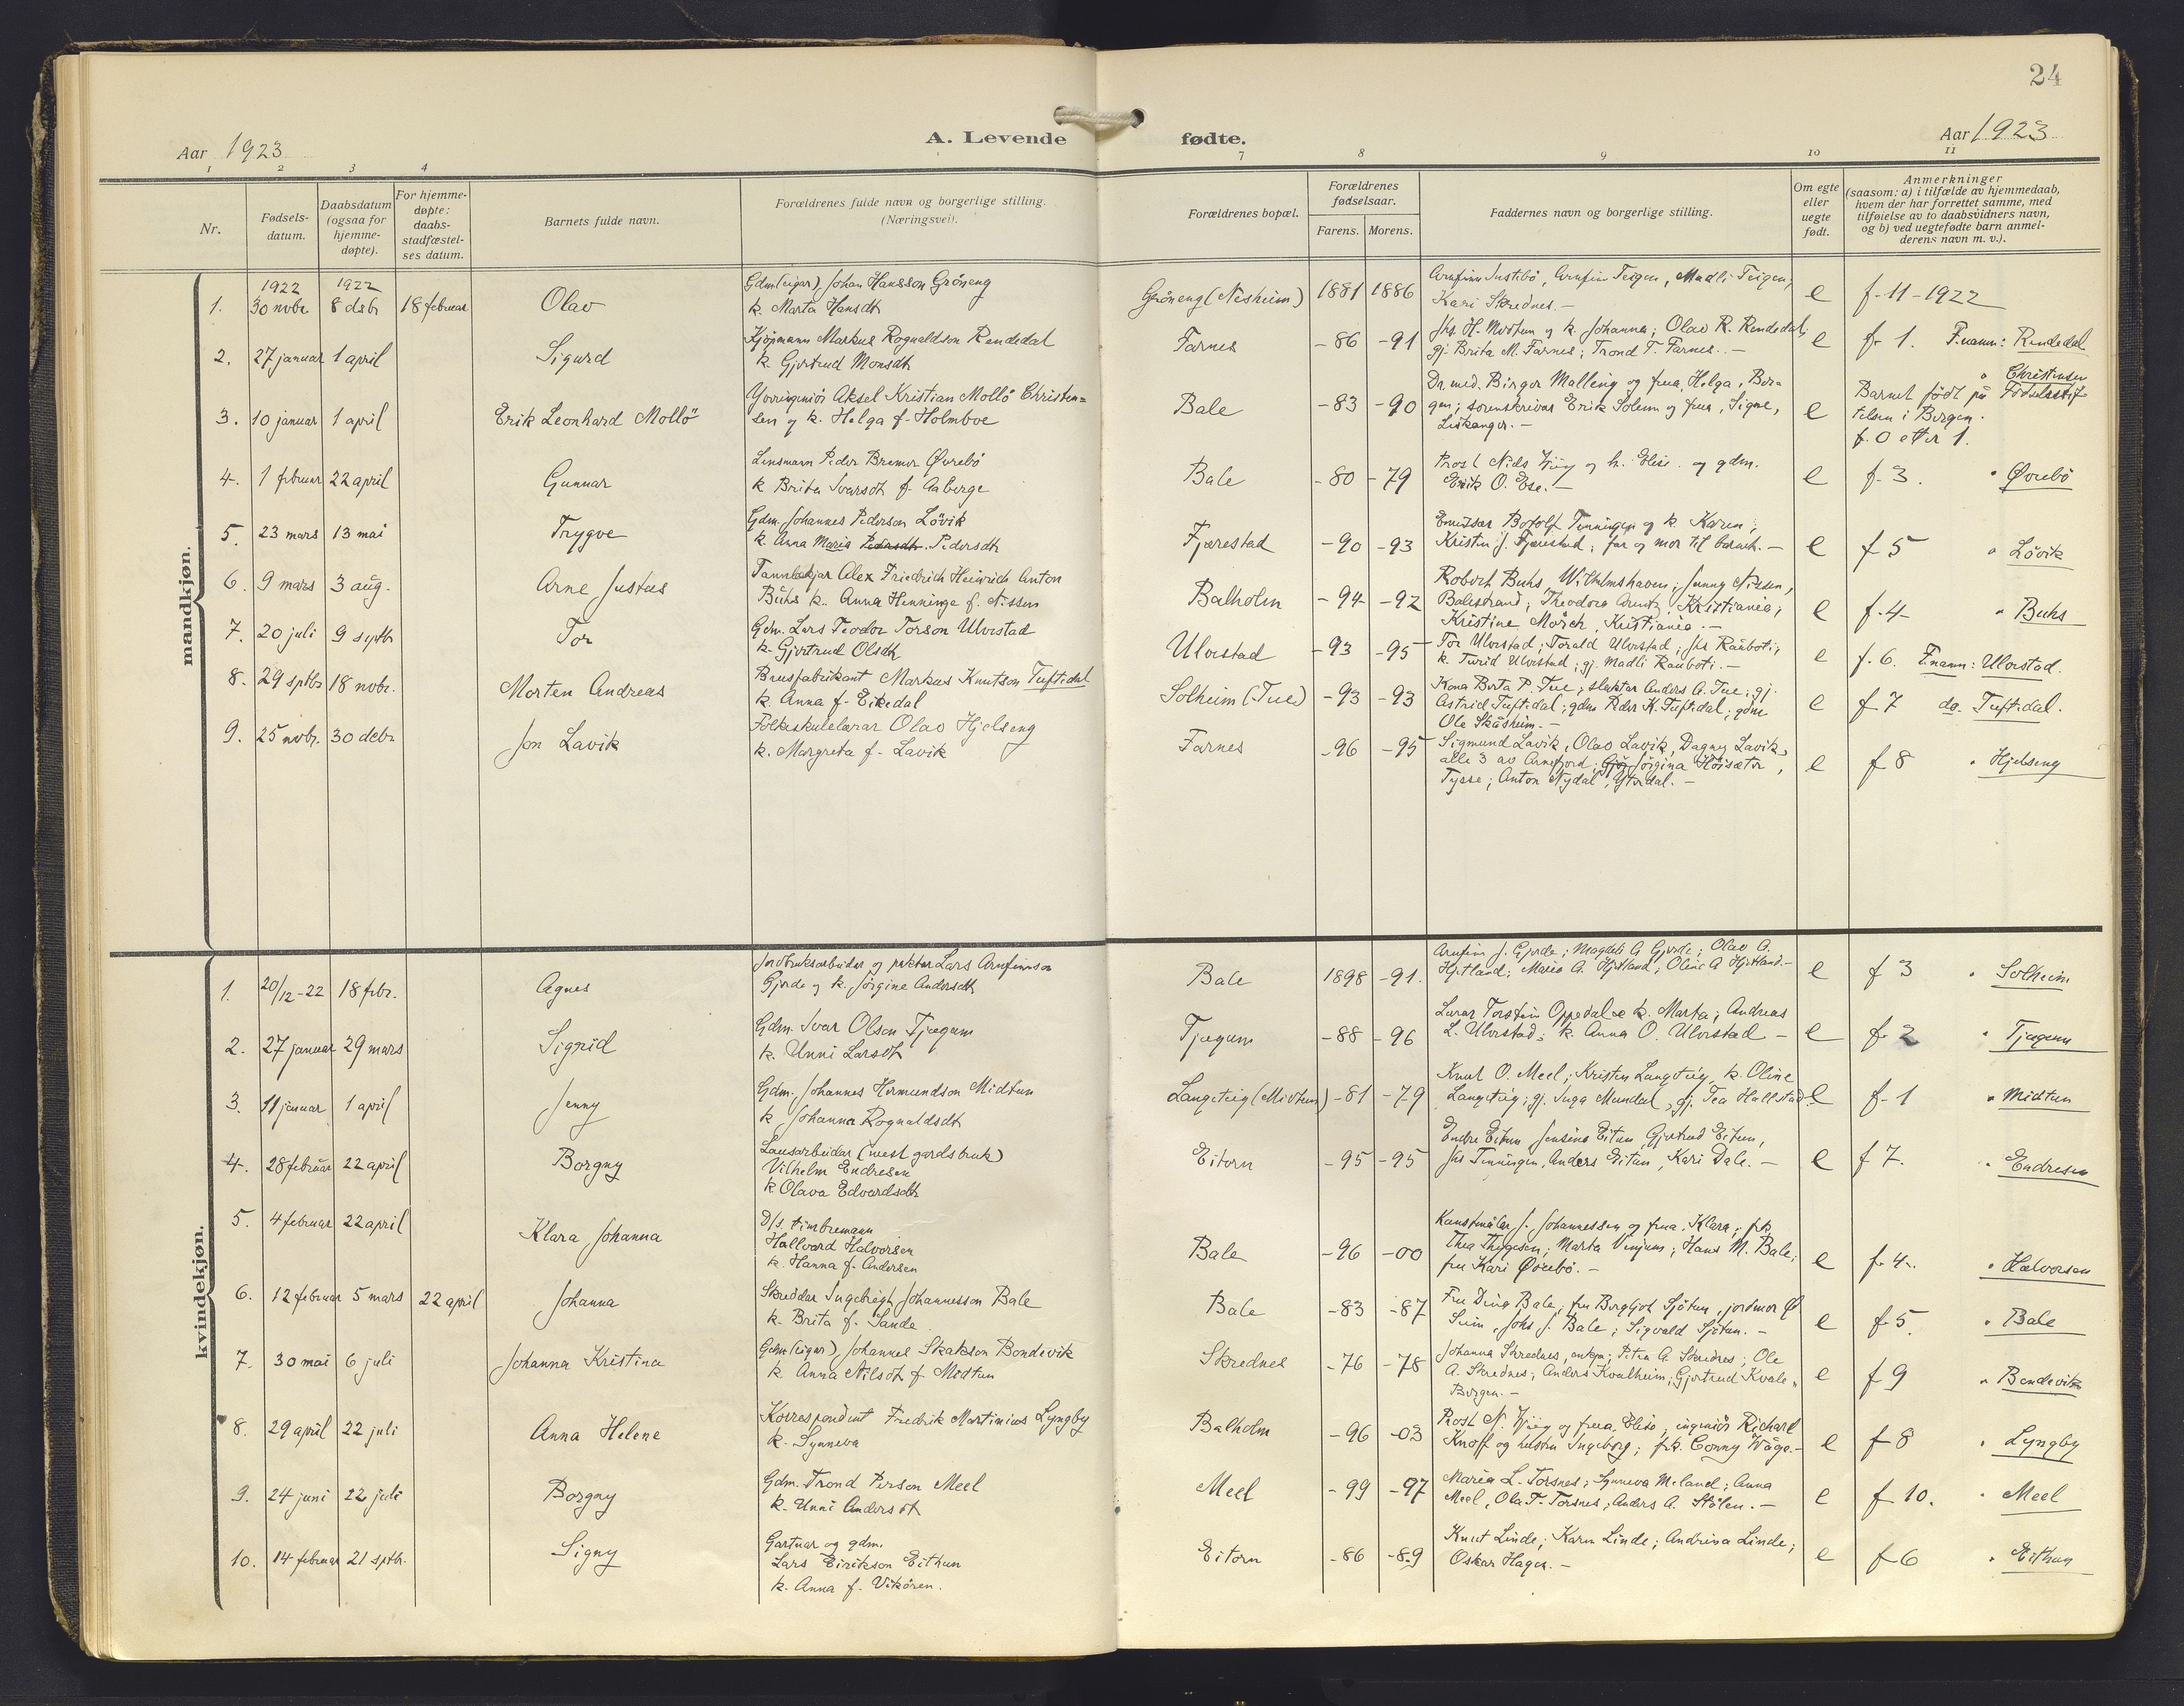 24
Aar 1923
A. Levende fødte.
Aar 1923
1 2 3 4 7 8 9 10 11
Nr.
Fødsels-
datum.
Daabsdatum
(ogsaa for
hjemme-
døpte).
For hjemme-
døpte:
daabs-
stadfæstel-
ses datum.
Barnets fulde navn.
Forældrenes fulde navn og borgerlige stilling.
(Næringsvei).
Forældrenes bopæl.
Forældrenes
fødselsaar.
Farens. Morens.
Faddernes navn og borgerlige stilling.
Om egte
eller
uegte
født.
Anmerkninger
(saasom: a) i tilfælde av hjemmedaab,
hvem der har forrettet samme, med
tilføielse av to daabsvidners navn,
og b) ved uegtefødte barn anmel-
derens navn m. v.).
mandkjøn.
1. 1922 30 novbr. 1922 8 dsbr 18 februar Olav
Gdm (eigar) Johan Hansson Gröneng
k. Marta Hansdtr
Gröneng (Nesheim) 1881 1886
Arnfinn Teigen, Madli Teigen,
Kari Skrednes.-
e f-11-1922
2. 27 januar 1 april Sigurd
Kjöpmann Markus Rognaldson Rendedal
k. Gjertrud Monsdtr
Farnes -86 -91
Jhs. H. Midtun og k. Johanna; Olav R. Rendedal;
gj. Brita M. Farnes; Trond T. Farnes.-
e f- 1. F.namn: Rendedal
3. 10 januar 1 april Erik Leonhard Mollö
Yveringeniör Aksel Kristian Mollö Christen=
sen og k. Helga f. Holmboe
Bale -83 -90
Dr. med. Birger Malling og frua, Helga, Ber=
gen; sorenskrivar Erik Solem og frua, Signe,
Leikanger.-
e " Christensen
Barnet födt på Födselsstif
telsen i Bergen.
f. 0 etter 1.
4. 1 februar 22 april Gunnar
Lensmann Peder Bremer Øvrebö
k Brita Ivarsdtr f. Aaberge
Bale -80 -79
Prost Niels Wiig og h. Elise og gdm.
Eirik O. Ese.-
e f- 3. " Øvrebö
5. 23 mars 13 mai Trygve
Gdm. Johannes Pederson Lövik
k. Anna Maria Pedersdtr. Pedersdtr
Fjærestad -90 -93
Botolf Tenningen og k. Karen;
Kristen J. Fjærestad; far og mor til barnet.-
e f 5 " Lövik
6. 9 mars 3 aug. Arne Justus
Tannlækjar Alex Friedrich Heinrich Anton
Buhs k. Anna Henninge f. Nissen
Balholm -94 -92
Robert Buhs, Wilhelmshaven; Jenny Nilsen,
Balestrand; Theodora Arentz, Kristiania;
Kristine Mörch, Kristiania.-
e f-4- " Buhs
7. 20 juli 9 septbr Tor
Gdm. Lars Teodor Torson Ulvestad
k. Gjertrud Olsdtr
Ulvestad -93 -95
Tor Ulvestad; Torald Ulvestad; Jhs Rauboti;
k. Turid Ulvestad; gj. Madli Rauboti.-
e f. 6. F.namn: Ulvestad.
8. 29 septbr 18 novbr. Morten Andreas
Brusfabrikant Markus Knutson Tuftedal
k. Anna f. Eikedal
Solheim (Tue) -93 -93
Kona Berta P. Tue; slaktar Anders A. Tue; gj.
Astrid Tuftedal; gdm Peder K. Tuftedal; gdm
Ole Skåsheim.-
e f 7 do. Tuftedal.
9. 25 novbr. 30 debr Jon Lavik
Folkeskulelærar Olav Hjelseng
k. Margreta f. Lavik
Farnes -96 -95
Sigmund Lavik, Olav Lavik, Dagny Lavik,
alle 3 av Arnefjord; Jörgina Höisæter,
Tysse; Anton Nydal, Ytredal.-
e f 8 " Hjelseng
kvindekjøn.
1. 20/12-22 18 febr. Agnes
Jordbruksarbeidar og Lars Arnfinnson
Gjerde og k. Jörgine Andersdtr
Bale 1898 -91.
Arnfinn J. Gjerde; Magdeli A Gjerde; Olav A.
Hjetland; Maria A. Hjetland; Oline A Hjetland.-
e f 3 " Solheim
2. 27 januar 29 mars Sigrid
Gdm. Ivar Olson Tjugum
k. Unni Larsdtr
Tjugum -88 -96
Lærar Torstein Oppedal og k. Marta; Andreas
L. Ulvestad; k. Anna O. Ulvestad -
e f- 2 " Tjugum
3. 11 januar 1 april Jenny
Gdm. Johannes Hermundson Midtun
k Johanna Rognaldsdtr
Langeteig (Midtun) -81 -79
Knut O. Meel; Kristen Langeteig, k. Oline
Langeteig; gj. Inga Mundal, gj. Tea Hallstad
e f-1 " Midtun
4. 28 februar 22 april Borgny
Lausarbeidar (mest gardsbruk)
Vilhelm Endresen
k Olava Edvardsdtr
Eitorn -95 -95
Endre Eitun Jensine Eitun, Gjertrud Eitun,
Jhs Tenningen, Anders Eitun, Kari Dale.-
e f 7. " Endresen
5. 4 februar 22 april Klara Johanna
D/s. timbremann
Hallvard Halvorsen
k. Hanna f. Andersen
Bale -96 -00
Kunstmålar J. Johannessen og frua, Klara; frk.
Thea Thygesen; Marta Vinjum; Hans M. Bale;
fru Kari Øvrebö.-
e f-4-. " Halvorsen
6. 12 februar 5 mars 22 april Johanna
Skreddar Ingebrigt Johannesson Bale
k. Brita f. Sande
Bale -83 -87
Fru Dina Bale, fru Bergljot Sjötun, jordmor Ø
Suim, Johs J. Bale; Sigvald Sjötun.-
e f-5. " Bale
7. 30 mai 6 juli Johanna Kristina
Gdm (eigar) Johannes Skakson Bondevik
k. Anna Nilsdtr f. Midtun
Skrednes -76 -78
Johanna Skrednes, enkja; Petra A. Skrednes; Ole
A. Skrednes; Anders Kvalheim; Gjertrud Kvale,
Bergen.-
e f 9 " Bondevik
8. 29 april 22 juli Anna Helene
Korrespondent Fredrik Martinius Lyngby
k. Synneva
Balholm -96 -03
Prost N. Wiig og frua, Elise; ingeniör Richard
Knoff og Ingeborg; frk. Conny Wåge.-
e f-8 " Lyngby
9. 24 juni 22 juli Borgny
Gdm. Trond Person Meel
k. Unni Andersdt
Meel -99 -97
Maria L. Torsnes; Synneva Meland; Anna
Meel, Ola T. Torsnes; Anders A. Stölen.-
e f 10. " Meel
10. 14 februar 21 septbr. Signy
Gartnar og gdm.
Lars Eirikson Eithun
k. Anna f. Vikören.
Eitorn -86 -89
Knut Linde; Karen Linde; Andrina Linde;
Oskar Hagen.-
e f 6 " Eithun